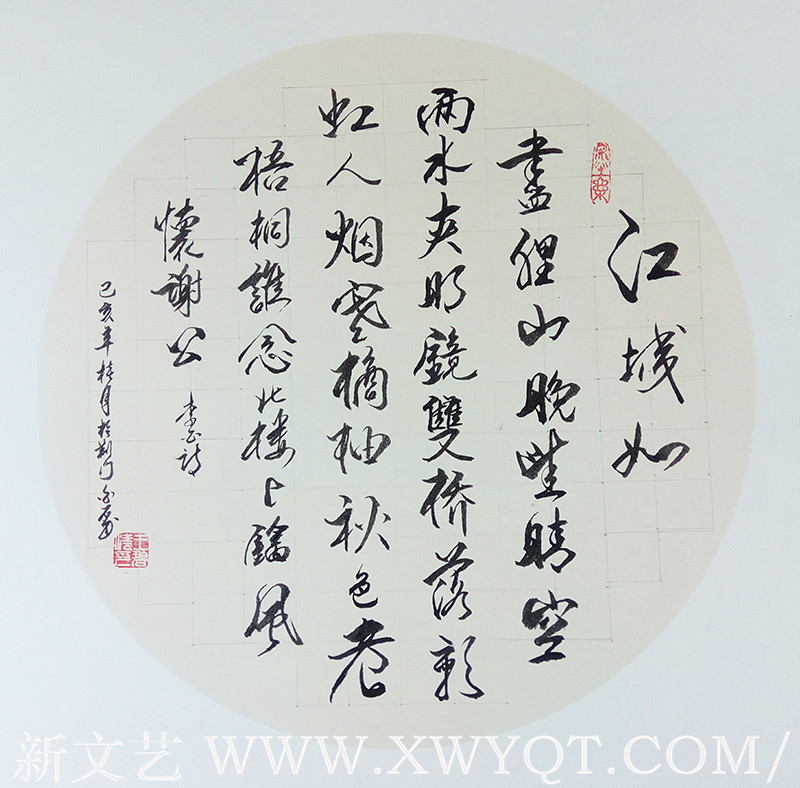 江城如
畫裡山晚望晴空
兩水夾明鏡雙桥落彩
虹人烟寒橘柚秋色老
梧桐誰念北楼上臨風
懷謝公
李白詩
己亥年桂月於荆门
新文艺 WWW.XWYQT.COM/